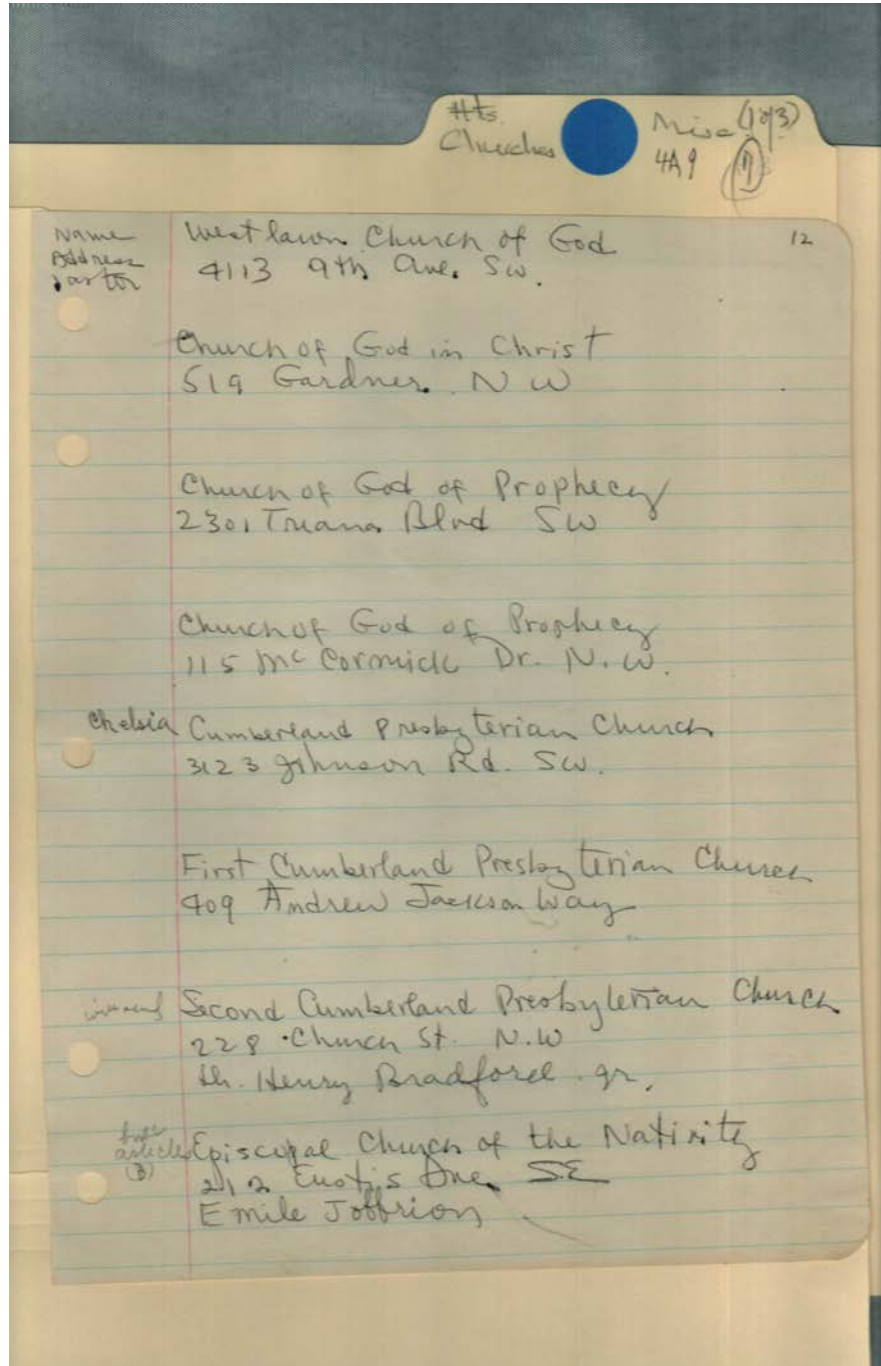 Hts.
Churches
Misc (1 of 3)
4A9
12
Name
Address
Pastor
West lawn Church of God
4113 9th Ave. SW.
Church of God in Christ
519 Gardner. NW
Church of God of Prophecy
2301 Triana Blvd SW
Church of God of Prophecy
115 McCormick Dr. N.W.
Chelsia Cumberland Presbyterian Church
3123 Johnson Rd. SW.
First Cumberland Presbyterian Church
409 Andrew Jackson Way
Second Cumberland Presbyterian Church
228 Church St. N.W
Henry Bradford Jr.
articles
(3)
Episcopal Church of the Nativity
212 Eustis Ave. SE
Emile Joffrion